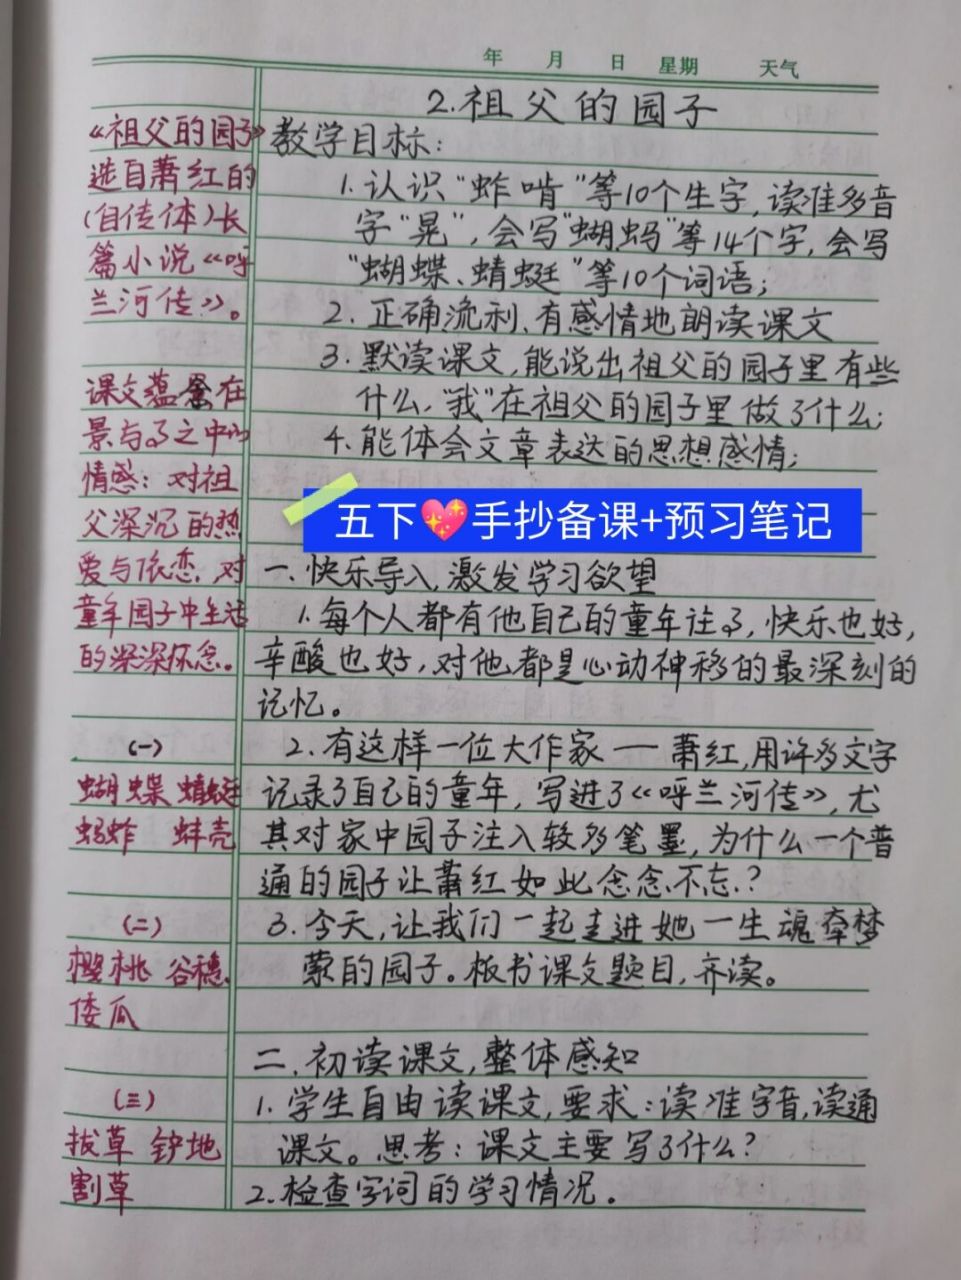 年 月 日 星期 天气
2.祖父的园子
《祖父的园子》
选自萧红的
(自传体)长
篇小说《呼
兰河传》。
课文蕴含在
景与事之中的
情感：对祖
父深沉的热
爱与依恋,对
童年园子中生活
的深深怀念。
(一)
蝴蝶 蜻蜓
蚂蚱 蚌壳
(二)
樱桃 谷穗
倭瓜
(三)
拔草 铲地
割草
教学目标：
1.认识“蚱啃”等10个生字,读准多音
字“晃”,会写“蝴蚂”等14个字,会写
“蝴蝶、蜻蜓”等10个词语;
2.正确流利、有感情地朗读课文
3.默读课文,能说出祖父的园子里有些
什么,“我”在祖父的园子里做了什么;
4.能体会文章表达的思想感情;
五下💖手抄备课+预习笔记
一.快乐导入,激发学习欲望
1.每个人都有他自己的童年往事,快乐也好,
辛酸也好,对他都是心动神移的最深刻的
记忆。
2.有这样一位大作家——萧红,用许多文字
记录了自己的童年,写进了《呼兰河传》,尤
其对家中园子注入较多笔墨,为什么一个普
通的园子让萧红如此念念不忘?
3.今天,让我们一起走进她一生魂牵梦
萦的园子。板书课文题目,齐读。
二.初读课文,整体感知
1.学生自由读课文,要求：读准字音,读通
课文。思考：课文主要写了什么?
2.检查字词的学习情况。